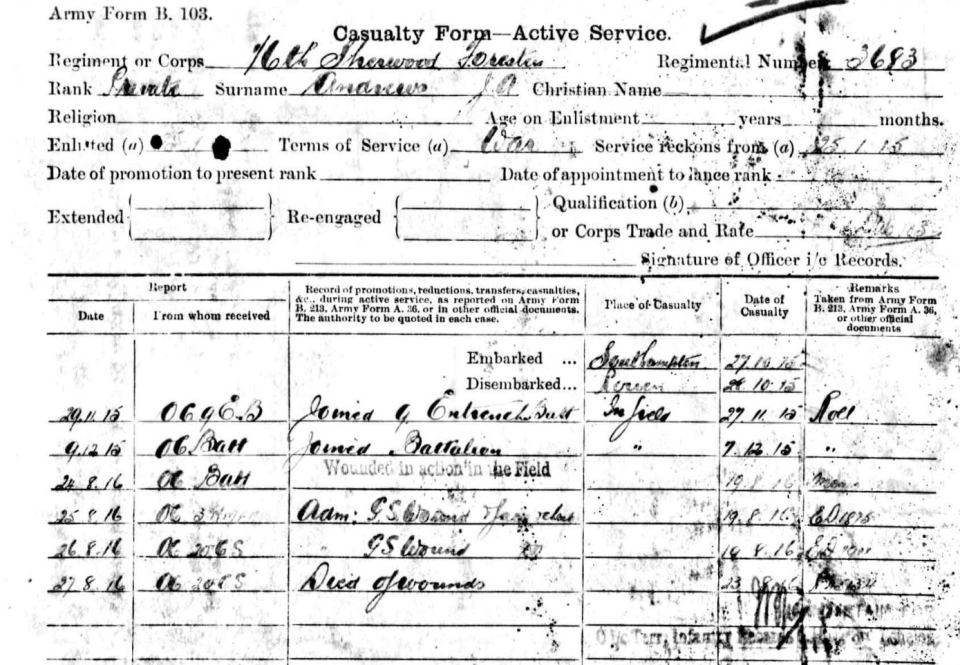 Army Form B. 103.
Casualty Form—Active Service.
Regiment or Corps 6th Sherwood Foresters Regimental Number 3683
Rank Private Surname Andrews J A Christian Name
Religion Age on Enlistment years months.
Enlisted (a) Terms of Service (a) War Service reckons from (a) 25 1 15
Date of promotion to present rank Date of appointment to lance rank
Extended Re-engaged Qualification (b)
or Corps Trade and Rate
Signature of Officer i/c Records.
Report Record of promotions, reductions, transfers, casualties, &c., during active service, as reported on Army Form B. 213, Army Form A. 36, or in other official documents. The authority to be quoted in each case. Place of Casualty Date of Casualty Remarks Taken from Army Form B. 213, Army Form A. 36, or other official documents
Date From whom received
Embarked ... Southampton 27.10.15
Disembarked... Rouen 28.10.15
29.11.15 OC 9 E.B Joined 9 Entrench Batt In field 27 11 15 Roll
9.12.15 OC Batt Joined Battalion " 7.12.15 "
24.8.16 OC Batt Wounded in action in the Field 19 8 16
25 8 16 OC Adm: G.S. Wound 19.8.16
26.8.16 OC CCS " GS Wound 19 8.16
27 8.16 OC CCS Died of wounds 23 8 16
O i/c Terr. Infantry